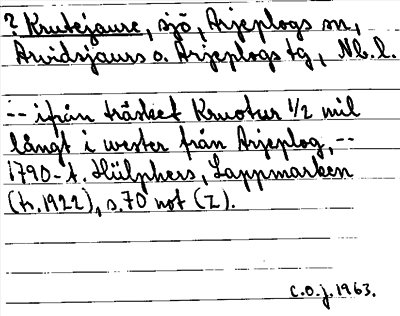 ? Krutejaure, sjö, Arjeplogs sn,
Arvidsjaurs o. Arjeplogs tg, Nb.l.
-- ifrån träsket Kruotur 1/2 mil
långt i wester från Arjeplog, --
1790-t. Hülphers, Lappmarken
(tr. 1922), s. 70 not (Z).
C.O.J. 1963.